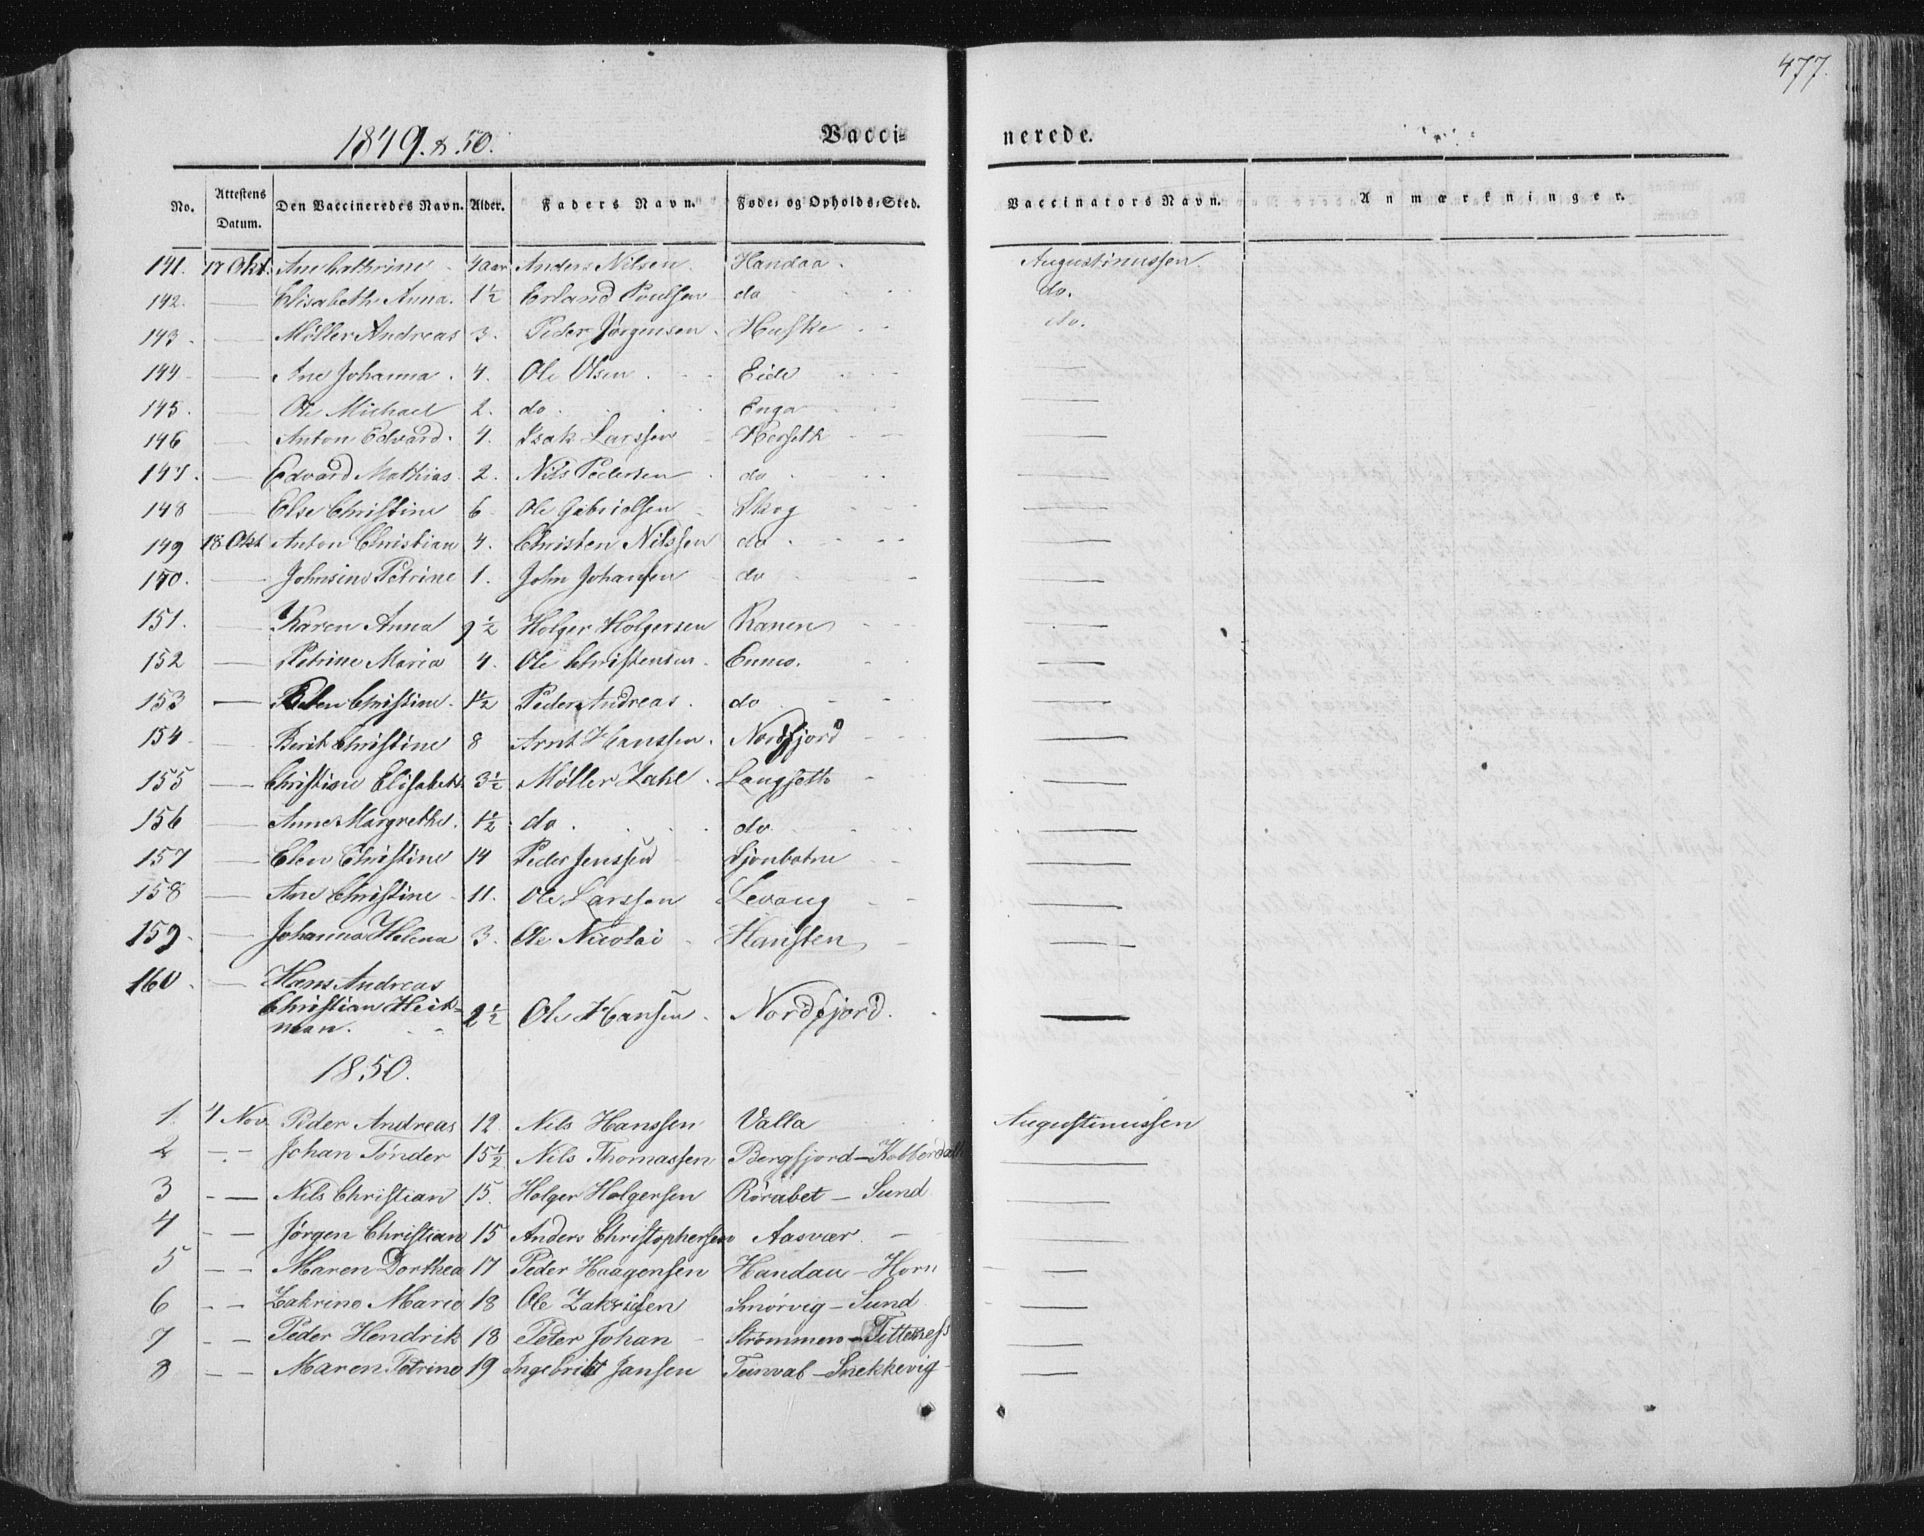 477.
1849. & 50.
Vaccinerede.
No. Attestens Datum. Den Vaccineredes Navn. Alder. Faders Navn. Føde- og Opholds-Sted. Vaccinators Navn. Anmærkninger.
141. 17 Okt. Ane Cathrine 4 aar Anders Nilsen. Handaa. Augustinussen.
142. — Elisabeth Anna. 1½ Erland Poulsen do do.
143. — Møller Andreas 3. Peder Jørgensen. Huske do.
144 — Ane Johanna. 4. Ole Olsen. Eide —
145. — Ole Michael 2. do. Enga —
146 — Anton Edvard. 4. Isak Larssen —
147. — Edvard Mathias 2. Nils Pedersen do —
148 — Else Christine 6 Ole Gabrielsen Skog —
149 18 Okt Anton Christian 4. Christen Nilssen do. —
150. — Petrine 1. John Johansen do —
151. — Karen Anna 9½ Holger Holgersen Ranen —
152 — Petrine Maria 4. Ole Christensen. —
153 — Christine. 1½ Peder Andreas. do —
154 — Berit Christine 8 Arnt Hanssen. Nordfjord —
155 — Christine Elisabeth 3½ Møller Zahl. Langsette —
156 — Anne Margrethe. 1½ do. do. —
157 — Elen Christine 14 Peder Jenssen Sjonbotne —
158 — Ane Christine 11. Ole Larssen Levang —
159. — Johanna Helena 3. Ole Nicolai Hansten —
160. — Hans Andreas
Christian Heit-
man. 2½ Ole Hansen. Nordfjord. —
1850.
1. 4 Nov. Peder Andreas 12 Nils Hanssen Valla Augustinussen
2 — Johan Tønder 15½ Nils Thomassen Bergfjord — —
3 — Nils Christian 15. Holger Holgersen Rørabet — Sund —
4 — Jørgen Christian 15 Anders Christophersen Aasvær. —
5 — Maren Dorthea 17 Peder Haagensen Handau — Horn —
6 — Zakrine Marie 18 Ole Zakrisen Smørvig — Sund —
7 — Peder Hendrik 18 Peter Johan Strømmen — —
8 — Maren Petrine 19 Ingebrikt Jansen — Snekkevig —